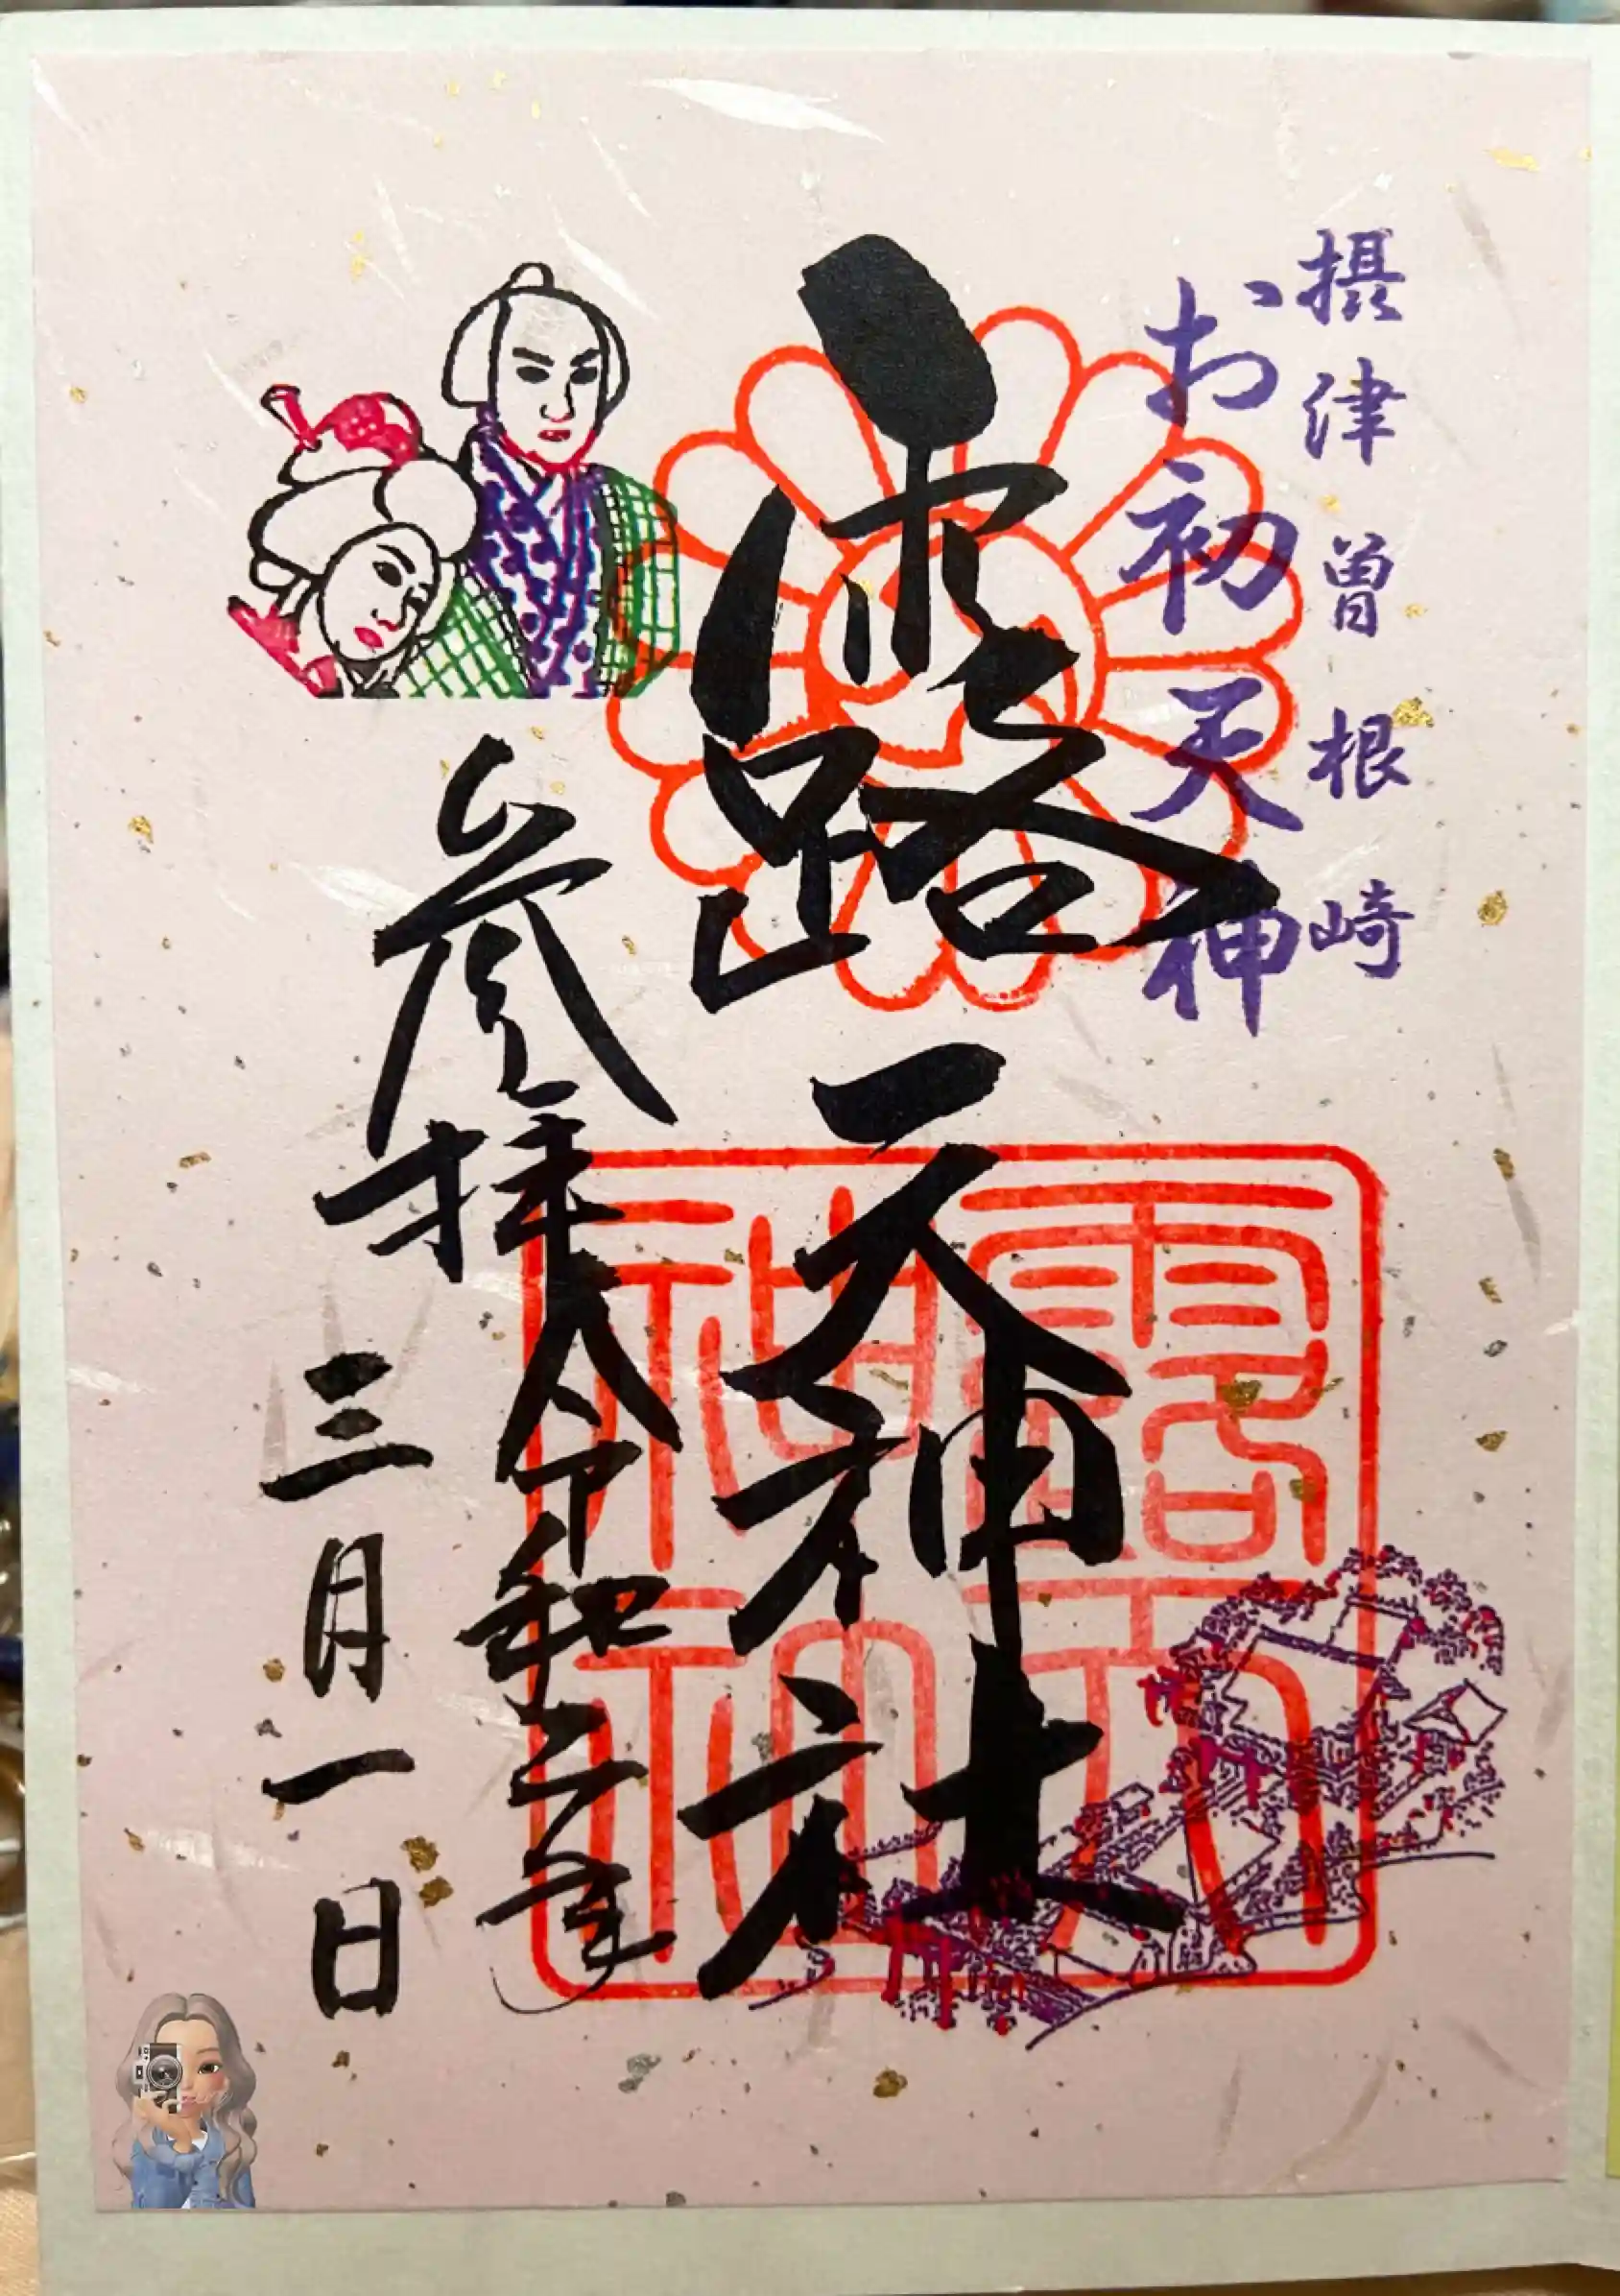 摂津曽根崎
お初天神
露天神社
参拝令和年
三月一日